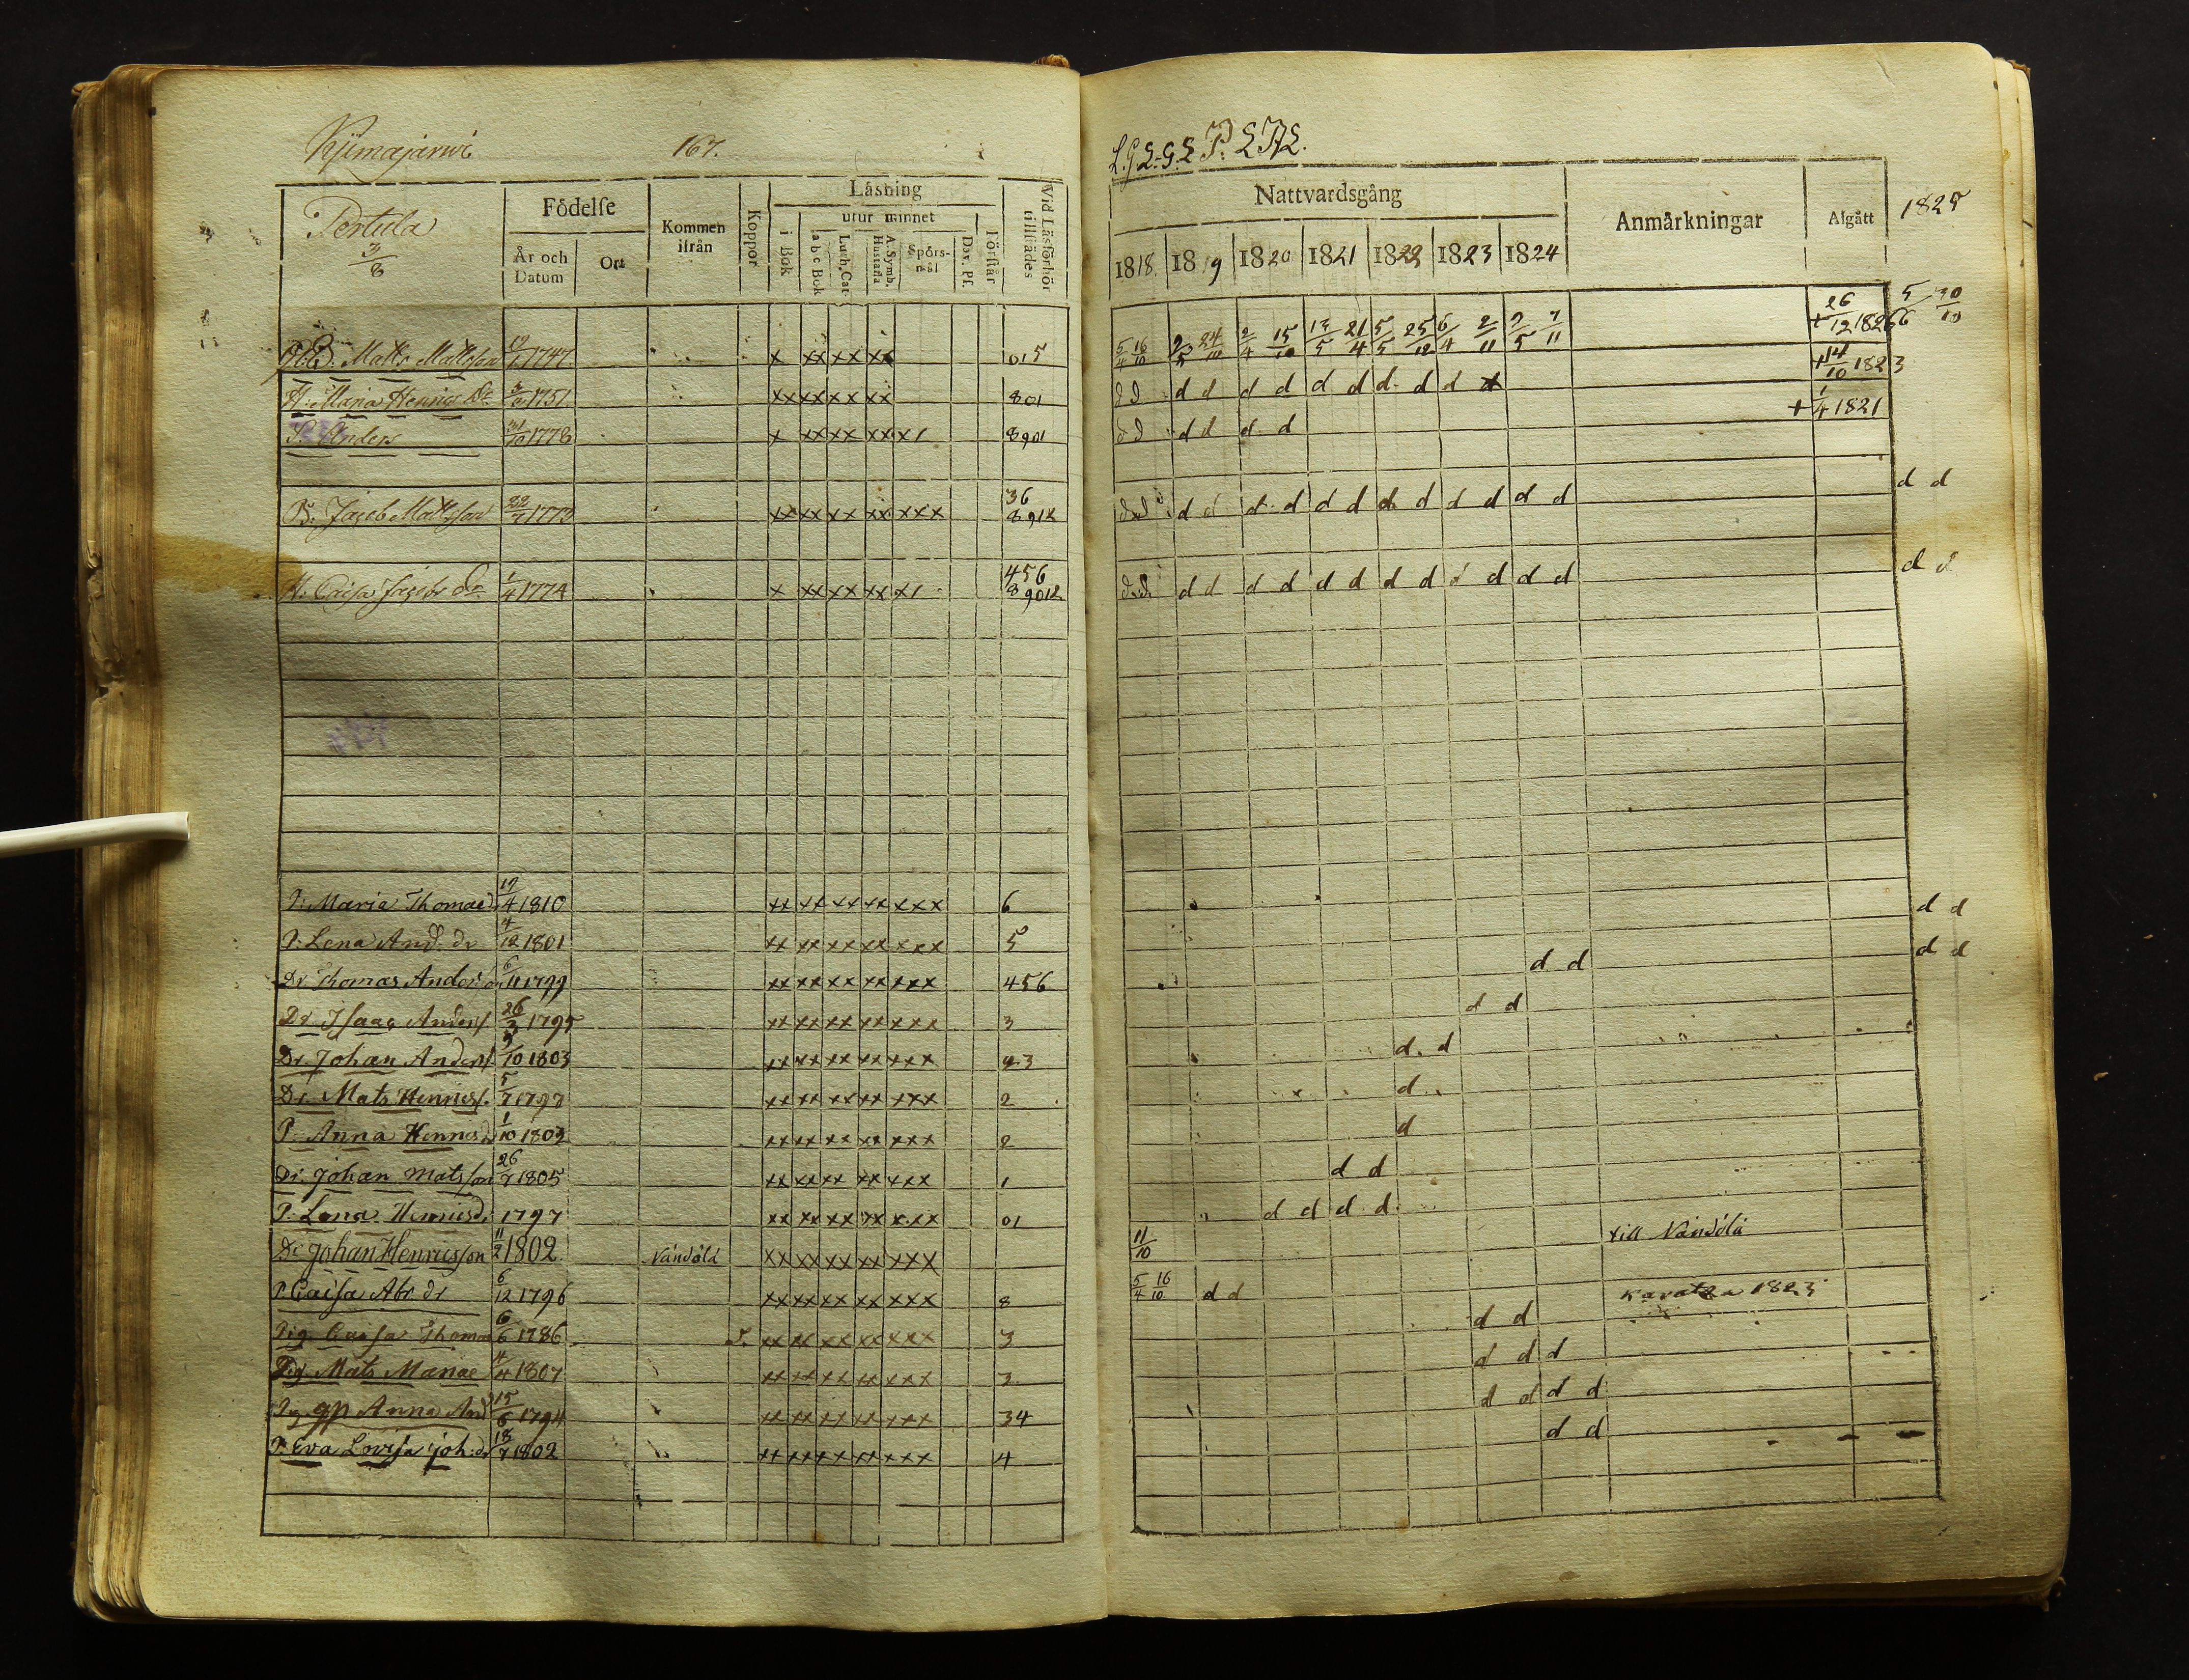 Kjimajärwi 167.
Pertula 3/8
Födelse
År och Datum
Ort
Kommen ifrån
Koppor
Läsning
utur minnet
i Bok
a b c Bok
Luth. Cat
A. Symb. Hustafla
Spörs-mål
Dav. Ps.
Förstår
Vid Läsförhör tillstädes
Matts Mattsson 1747 x xx xx xx 015
H: Maria Henrics Dr 1751 xx xx xx xx 801
S. Anders 31/10 1778 x xx xx xx x/ 8901
B. Jacob Mattsson 1773 xx xx xx xx xxx 36 8912
H. Caisa Jacobs dr 1/4 1774 x xx xx xx x/ 456 89012
P: Maria Thomæ d 17/4 1810 xx xx xx xx xxx 6
P: Lena And. dr 4/12 1801 xx xx xx xx xxx 5
Dr Thomas Anders 6/11 1799 xx xx xx xx xxx 456
Dr Isaac Anders 26/3 1795 xx xx xx xx xxx 3
Dr Johan Anders 3/10 1803 xx xx xx xx xxx 23
Dr. Mats Henrics. 5/7 1797 xx xx xx xx xxx 2
P. Anna Henrics d 1/10 1803 xx xx xx xx xxx 2
Dr. Johan Matsson 26/7 1805 xx xx xx xx xxx 1
P. Lena Henricsd. 1797 xx xx xx xx xxx 01
Dr Johan Henricsson 11/2 1802 Nändölä xx xx xx xx xxx
P. Caisa Abr. dr 6/12 1796 xx xx xx xx xxx 8
Pig. Caisa Thomæ 6/6 1786 xx xx xx xx xxx 3
Mats Manae 4/4 1807 xx xx xx xx xxx 3
Anna And 15/6 1794 xx xx xx xx xxx 34
P. Eva Lovisa Joh: dr 18/7 1802 xx xx xx xx xxx 4
L. G. L. G. L. P. L A L.
Nattvardsgång
Anmärkningar
Afgått
1825
1818. 1819 1820 1821 1822 1823 1824
5/4 16/10 2/5 24/10 2/4 15/10 13/5 21/4 5/5 25/12 6/4 2/11 7/5 7/11 + 26/12 1826 5/6 30/10
d d d d d d d d d d d + 14/10 1823
d d d d d d + 1/4 1821
d d d d d d d d d d d d d d d d
d d d d d d d d d d d d d d d d
d d
d d
d d
d d
d d
d
d
d d
d d d d
11/10 till Nändölä
5/4 16/10 d d Karatka 1823
d d
d d d
d d d d
d d